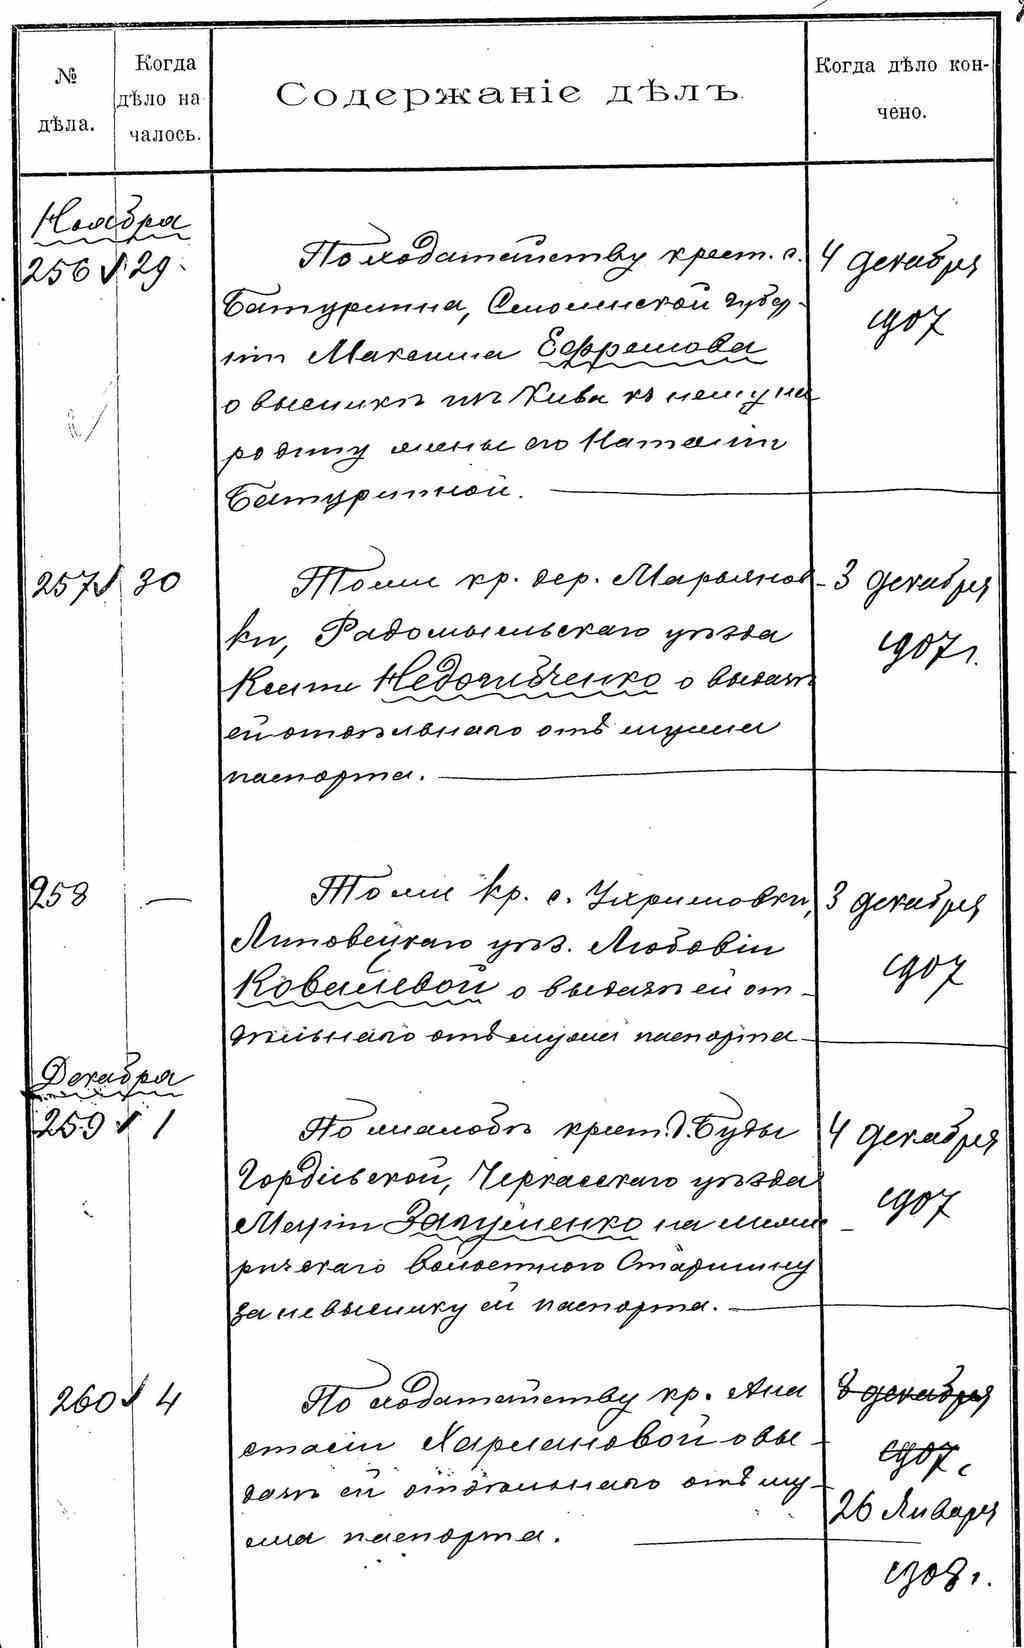 № дѣла.
Когда дѣло на чалось.
Содержаніе дѣлъ.
Когда дѣло кон- чено.
Ноября
256 29.
По ходатайству крест. с.
Батурина, Смоленской губер-
ніи Максима Ефремова
о высылкѣ изъ Кіева къ нему на
родину жены его Наталіи
Батуриной.
4 декабря
1907
257 30
Тоже кр. дер. Марьянов-
ки, Радомысльскаго уѣзда
Ксеніи о выдачѣ
ей отдѣльнаго отъ мужа
паспорта.
3 декабря
1907 г.
258 —
Тоже кр. с.
Липовецкаго уѣз. Любовіи
Ковалевой о выдачѣ ей от-
дѣльнаго отъ мужа паспорта
3 декабря
1907
Декабря
259 1
По жалобѣ крест. д. Буды
Гордіевской, Черкасскаго уѣзда
Маріи на
волостного Старшину
за невысылку ей паспорта.
4 декабря
1907
260 4
По ходатайству кр. Ана
стасіи Хармановой о вы-
дачѣ ей отдѣльнаго отъ му-
жа паспорта.
8 декабря
1907 г
26 Января
1908 г.